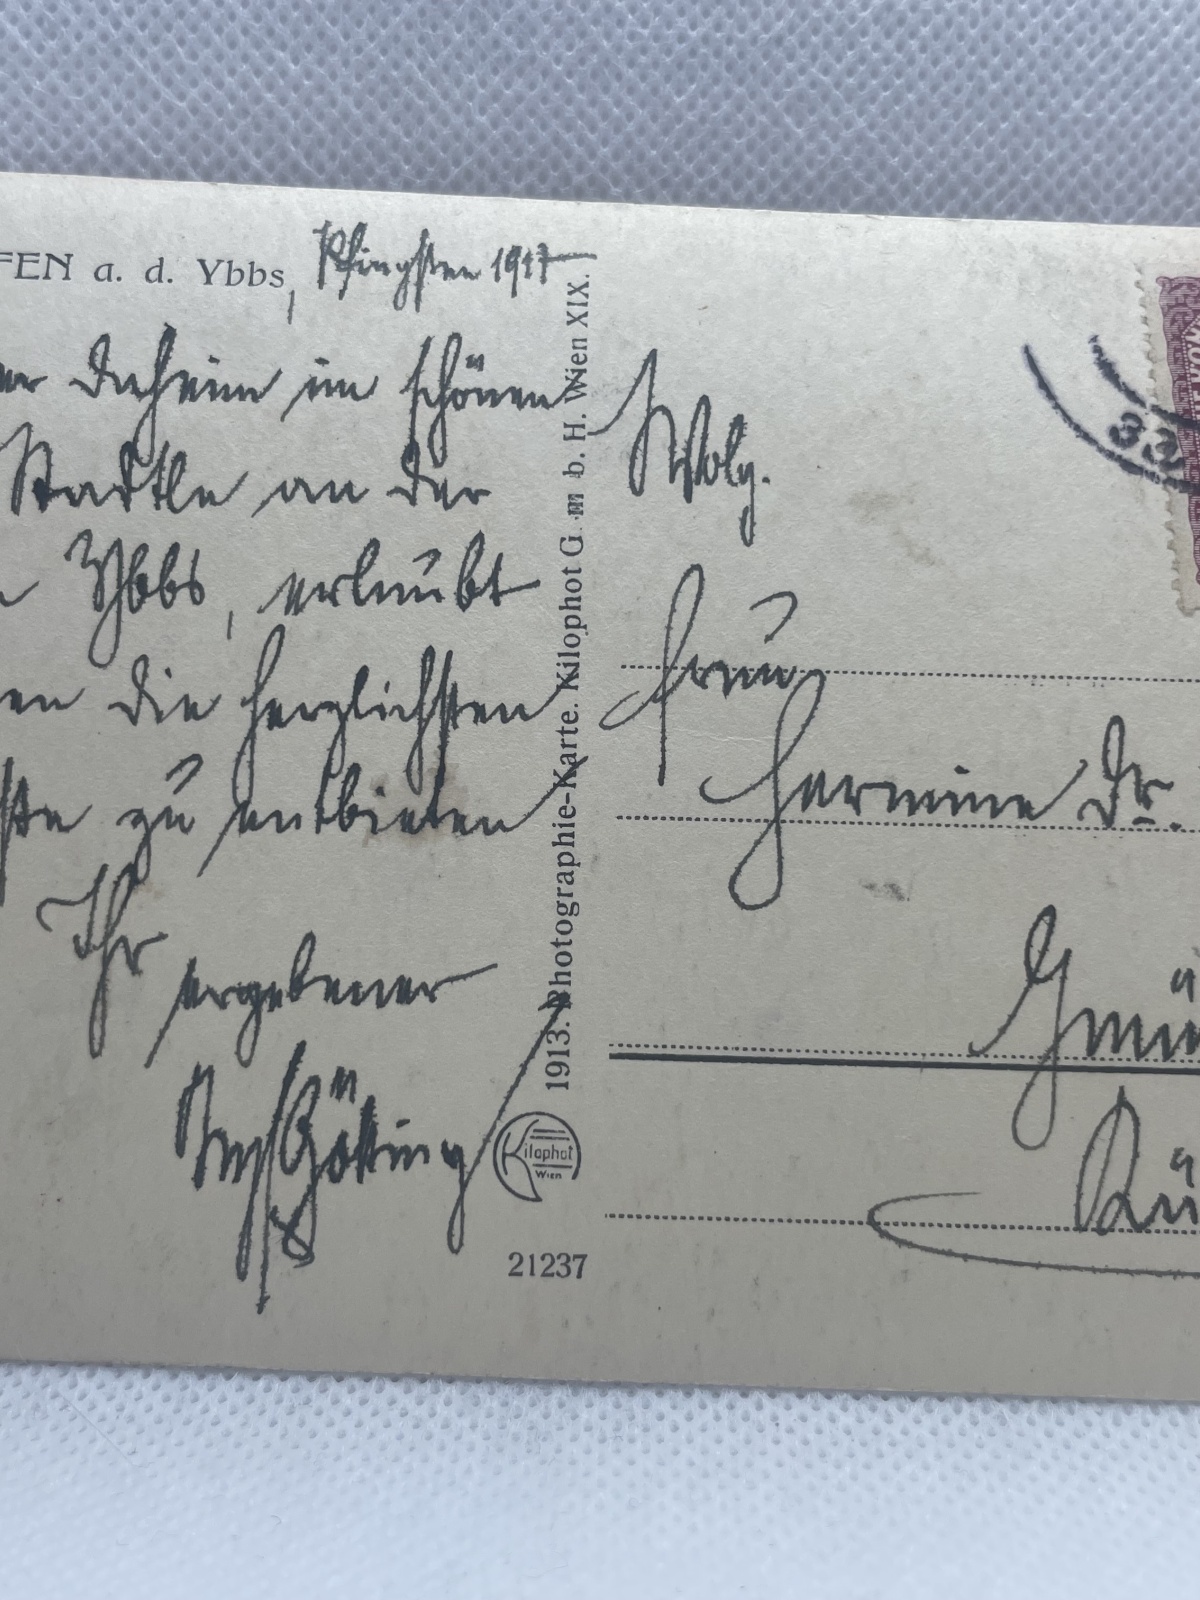 FEN a. d. Ybbs, Pfingsten 1917
er Daheim im schönen
Stadtle an der
Ybbs, erlaubt
en die herzlichsten
ste zu entbieten
Ihr
ergebener
1913. Photographie-Karte. Kilophot G. m. b. H. Wien XIX.
Kilophot
Wien
21237
Wolg.
Frau
Hermine Dr.
Gmü